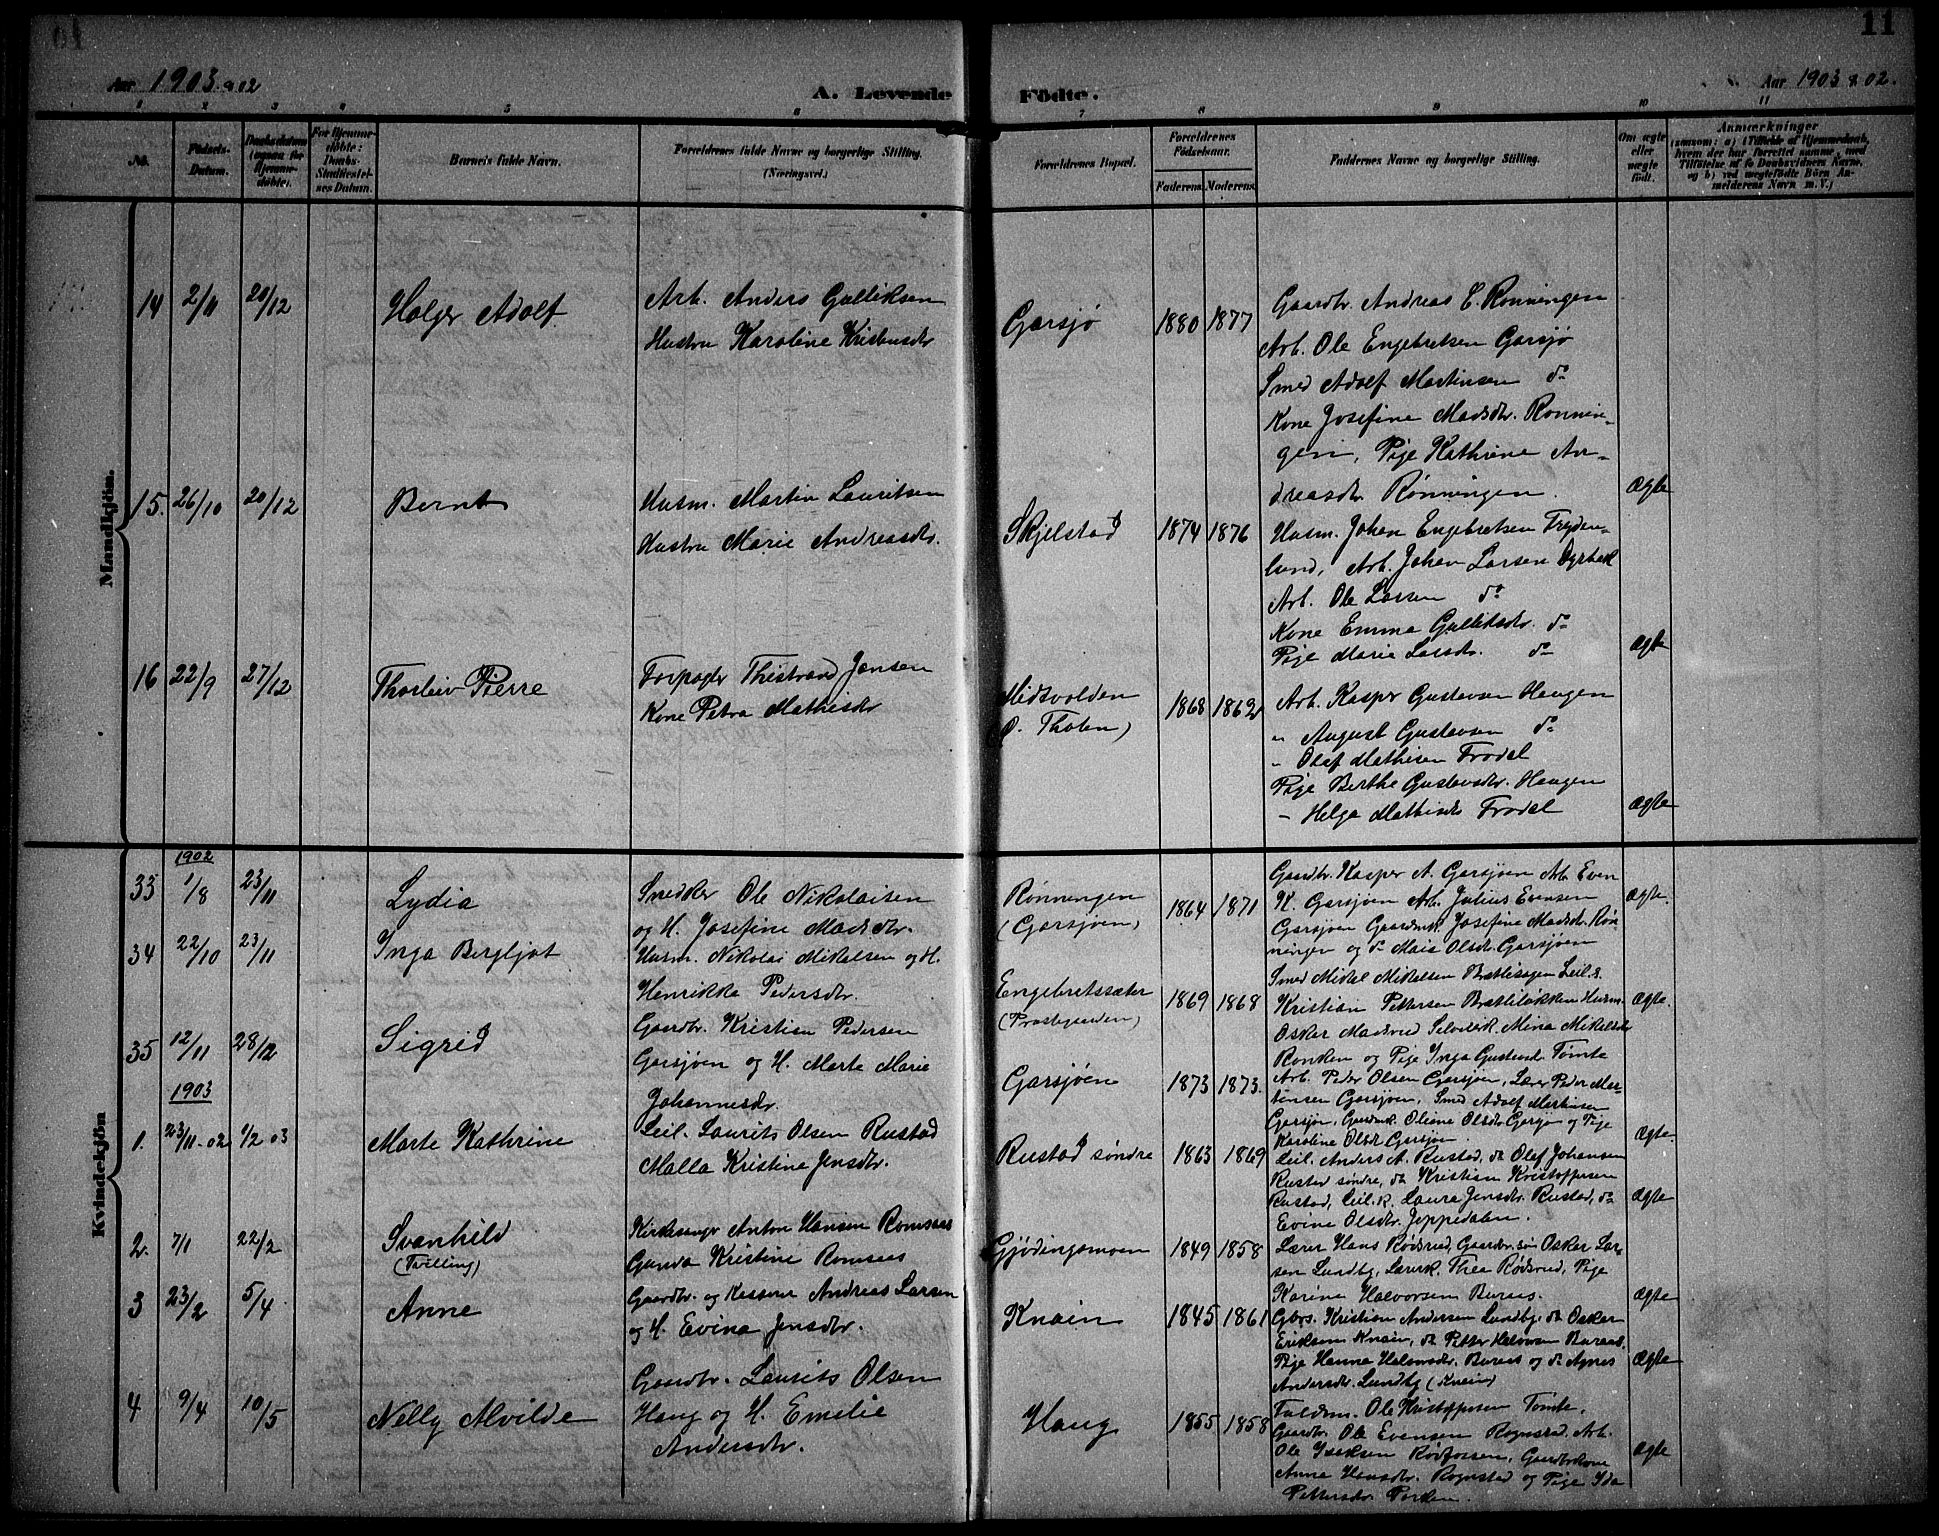 11
Aar 1903 & 02
A. Levende Födte.
Aar 1903 & 02.
1 2 3 4 5 6 7 8 9 10 11
No.
Födsels-Datum.
Daabsdatum
For Hjemme-döbte:
Barnets fulde Navn.
Forældrenes fulde Navne og borgerlige Stilling.
(Næringsvei.)
Forældrenes Bopæl.
Forældrenes Födselsaar.
Faderens Moderens
Faddernes Navne og borgerlige Stilling.
Om ægte eller uægte födt.
Anmærkninger
Mandkjön.
14 2/11 20/12 Holger Adolf
Arb. Anders Gulliksen
Hustru Karoline
Garsjø 1880 1877
Gaardbr. Andreas E. Rønningen
Arb. Ole Engebretsen Garsjø
Smed Adolf Martinsen do
Kone Josefine Madsdtr. Rønnin-
gen, Pige Kathrine An-
dreasdtr. Rønningen.
Ægte
15. 26/10 20/12 Bernt
Husm. Martin Lauritsen
Hustru Marie Andreasdtr.
Skjelstad 1874 1876
Husm. Johan Engebretsen Fryden-
lund, Arb. Johan Larsen
Arb. Ole Larsen do
Kone Emma Gulliksdtr. do
Pige Marie Larsdtr. do
Ægte
16 22/9 27/12 Thorleiv Pierre
Forpagter Thistrand Jensen
Kone Petra Mathisdtr
Midtvolden
1868 1862
Arb. Kasper Gustavsen Haugen
" August Gustavsen do
" Olaf Mathisen Frodal
Pige Berthe Gustavsdtr. Haugen
" Helga Mathisdtr Frodal
Ægte
Kvindekjön
1902
33 1/8 23/11 Lydia
Snedker Ole Nikolaisen
og H. Josefine Madsdtr.
Rønningen
(Garsjøen)
1864 1871
Gaardbr. Kasper A. Garsjøen Arb. Even
K. Garsjøen Arb. Julius Evensen
Garsjøen Gaardmk. Josefine Madsdtr. Røn-
ningen og do Olsdtr. Garsjøen
Ægte.
34 22/10 23/11 Inga Bergljot
Husm. Nikolai Mikelsen og H.
Henrikke Pedersdtr.
Engebretssæter
(Prestegaarden)
1869 1868
Smed Mikal Mikelsen
Kristian Pettersen Husm.
Oskar Mina Mikelsdtr
og Pige Inga Tømte
Ægte.
35 12/11 28/12 Sigrid
Gaardbr. Kristian Pedersen
Garsjøen og H. Marte Marie
Johannesdtr.
Garsjøen 1873 1873.
Arb. Peder Olsen Garsjøen, Lærer Peder Mar-
tinsen Garsjøen, Smed Adolf Martinsen
Garsjøn, Oline Olsdtr. Garsjø og Pige
Karoline Olsdtr Garsjøn.
Ægte.
1903
1. 23/11-02 1/2 03 Marte Kathrine
Leil. Laurits Olsen Rustad
Malla Kristine Jensdtr.
Rustad søndre 1863 1869
Leil. Anders A. Rustad, do Olaf Johansen
Rustad søndre, do Kristian Kristoffersen
Rustad, Leil.k. Laura Jensdtr. Rustad, do
Evine Olsdtr. Jeppedalen.
Ægte
2. 7/1 22/2 Svanhild
(Tvilling)
Kirkesanger Anton Hansen Romsaas
Gunda Kristine Romsaas
Gjødingsmoen 1849 1858
Lærer Hans Rødsrud, Gaardbr. søn Oskar Lar-
sen Lundby, Lærerk. Thea Rødsrud, Pige
Karine Halvorsen Buraas.
Ægte
3 23/2 5/4 Anne
Gaardbr. og Andreas Larsen
og H. Evina Jensdtr.
Knain 1845 1861
Gbrs. Kristian Andersen Lundby, do Oskar
Eriksen Knain, do Petter Halvorsen Buraas,
Pige Hanna Halvorsdtr. Buraas og do Agnes
Andersdtr. Lundby (Knain)
Ægte
4 9/4 10/5 Nelly Alvilde
Gaardbr. Laurits Olsen
Haug og H. Emilie
Andersdtr.
Haug 1855 1858
Ole Kristoffersen Tømte,
Gaardbr. Ole Evensen Rognstad, Arb.
Ole Isaksen Rødfossen, Gaardbrkone
Anne Hansdtr. Rognstad og Pige Ida
Pettersdtr.
Ægte